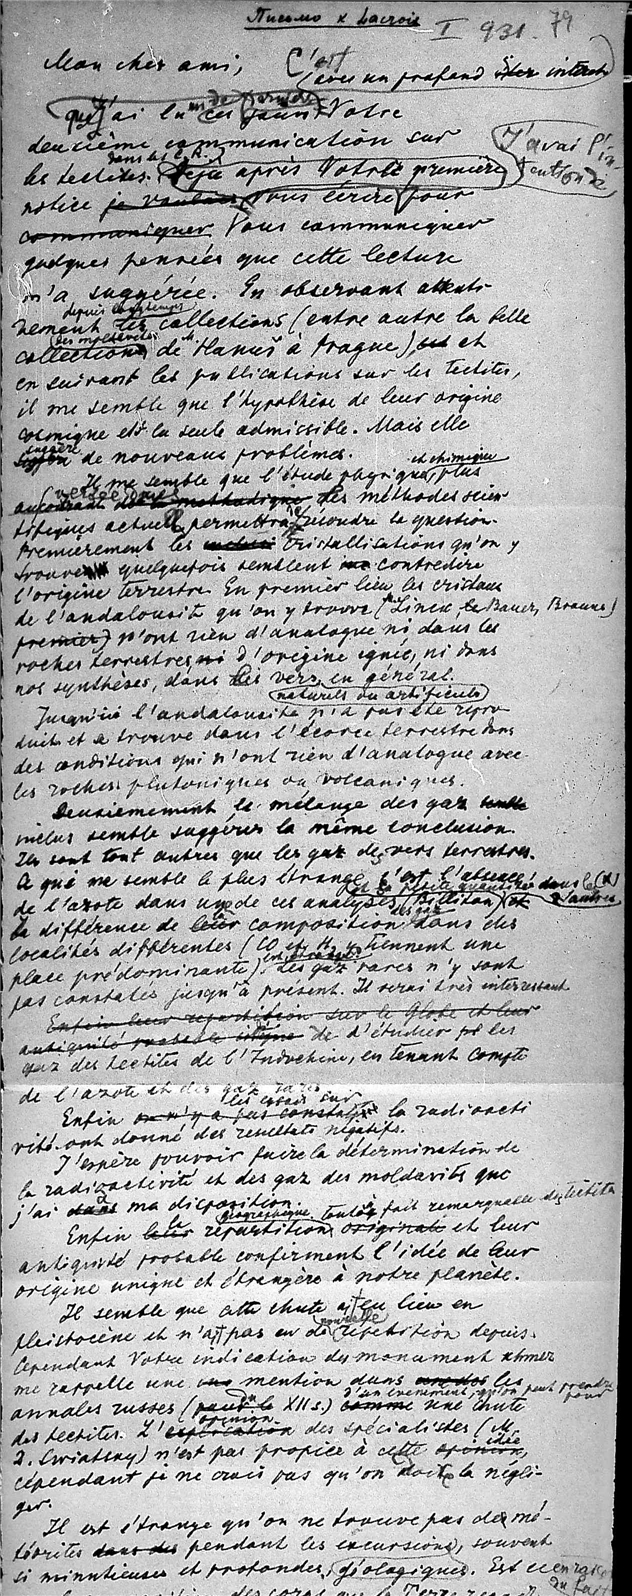 Письмо к Lacroix
I 931. 79
Mon cher ami, C'est
avec un profond intérêt
que j'ai lu ces jours Votre
deuxième communication sur
les tectites. dans les C.R. Déjà après Votre première J'avai l'in-
tention de
notice je voulais Vous écrire pour
communiquer Vous communiquer
quelques pensées que cette lecture
m'a suggérée. En observant attenti-
depuis longtemps
nement les collections (entre autre la belle
des moldavites
collection de "Hanuš" à Prague), et
en suivant les publications sur les tectites,
il me semble que l'hypothèse de leur origine
cosmique est la seule admissible. Mais elle
suggère de nouveaux problèmes.
Il me semble que l'étude physique, et chimique plus
méthodique des méthodes scien-
tifiques actuell permettra résoudre la question.
Premièrement les cristallisations qu'on y
trouve quelquefois semblent contredire
l'origine terrestre. En premier lieu les cristaux
de l'andalousite qu'on y trouve (Linck, Bauer, Brauns)
premier) n'ont rien d'analogue ni dans les
roches terrestres, ni d'origine ignée, ni dans
nos synthèses, dans les vers, en général.
naturels ou artificiels
Jusqu'ici l'andalousite n'a pas été repro
duit et a trouve dans l'écorce terrestre dans
des conditions qui n'ont rien d'analogue avec
les roches plutoniques ou volcaniques.
Deuxièmement le mélange des gaz semble
inclus semble suggérer la même conclusion.
Ils sont tout autres que les gaz des vers terrestres.
Ce qui me semble le plus étrange c'est l'absence
ou la petite quantité dans les
de l'azote dans une de ces analyses (Billiton) et d'autres
la différence de leur composition des gaz dans des
localités différentes (CO et H2 y tiennent une
place prédominante). Les gaz rares n'y sont
pas constatés jusqu'à présent. Il serai très interressant
Enfin leur repartition sur le Globe et leur
antiquité probable de d'étudier les
gaz des tectites de l'Indochine, en tenant compte
de l'azote et des gaz rares.
Enfin on n'y a pas constaté les essais sur la radioacti
vité ont donné des resultats négatifs.
J'espère pouvoir faire la détermination de
la radioactivité et des gaz des moldavites que
j'ai dans à ma disposition.
Enfin leur la repartition géographique tout à fait remarquable des tectites originale et leur
antiquité probable confirment l'idée de leur
origine unique et étrangère à notre planète.
Il semble que cette chute a eu lieu en
pleistocène et n'a pas eu de nouvelle répétition depuis.
Cependant Votre indication du monument khmer
me rappelle une mention dans les
annales russes (du XII s.) d'un evenement, qu'on peut prendre pour comme une chute
des tectites. L'explication opinion des spécialistes (M.
D. Swiatsky) n'est pas propice à cette opinion, idée
cépendant je ne crois pas qu'on doit la négli-
ger.
Il est étrange qu'on ne trouve pas de mé-
téorites dans des pendant les excursions, souvent
si minutieuses et profondes, géologiques. Est ce en raison
du fait
des corps que la Terre